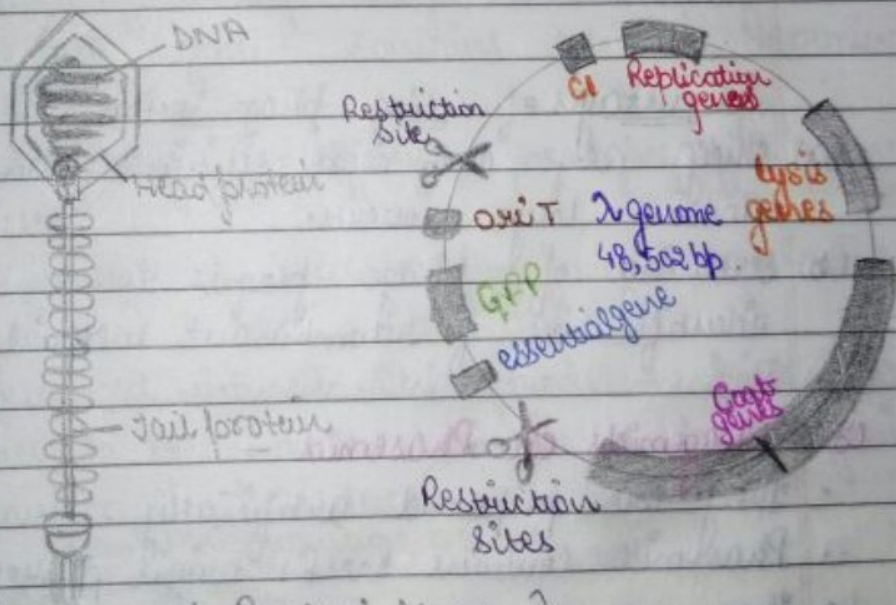 DNA
Head protein
Tail protein
Restriction
Site
CI
Replication
genes
Lysis
genes
oriT
λ genome
48,502 bp.
GFP
essential gene
Coat
genes
Restriction
Sites